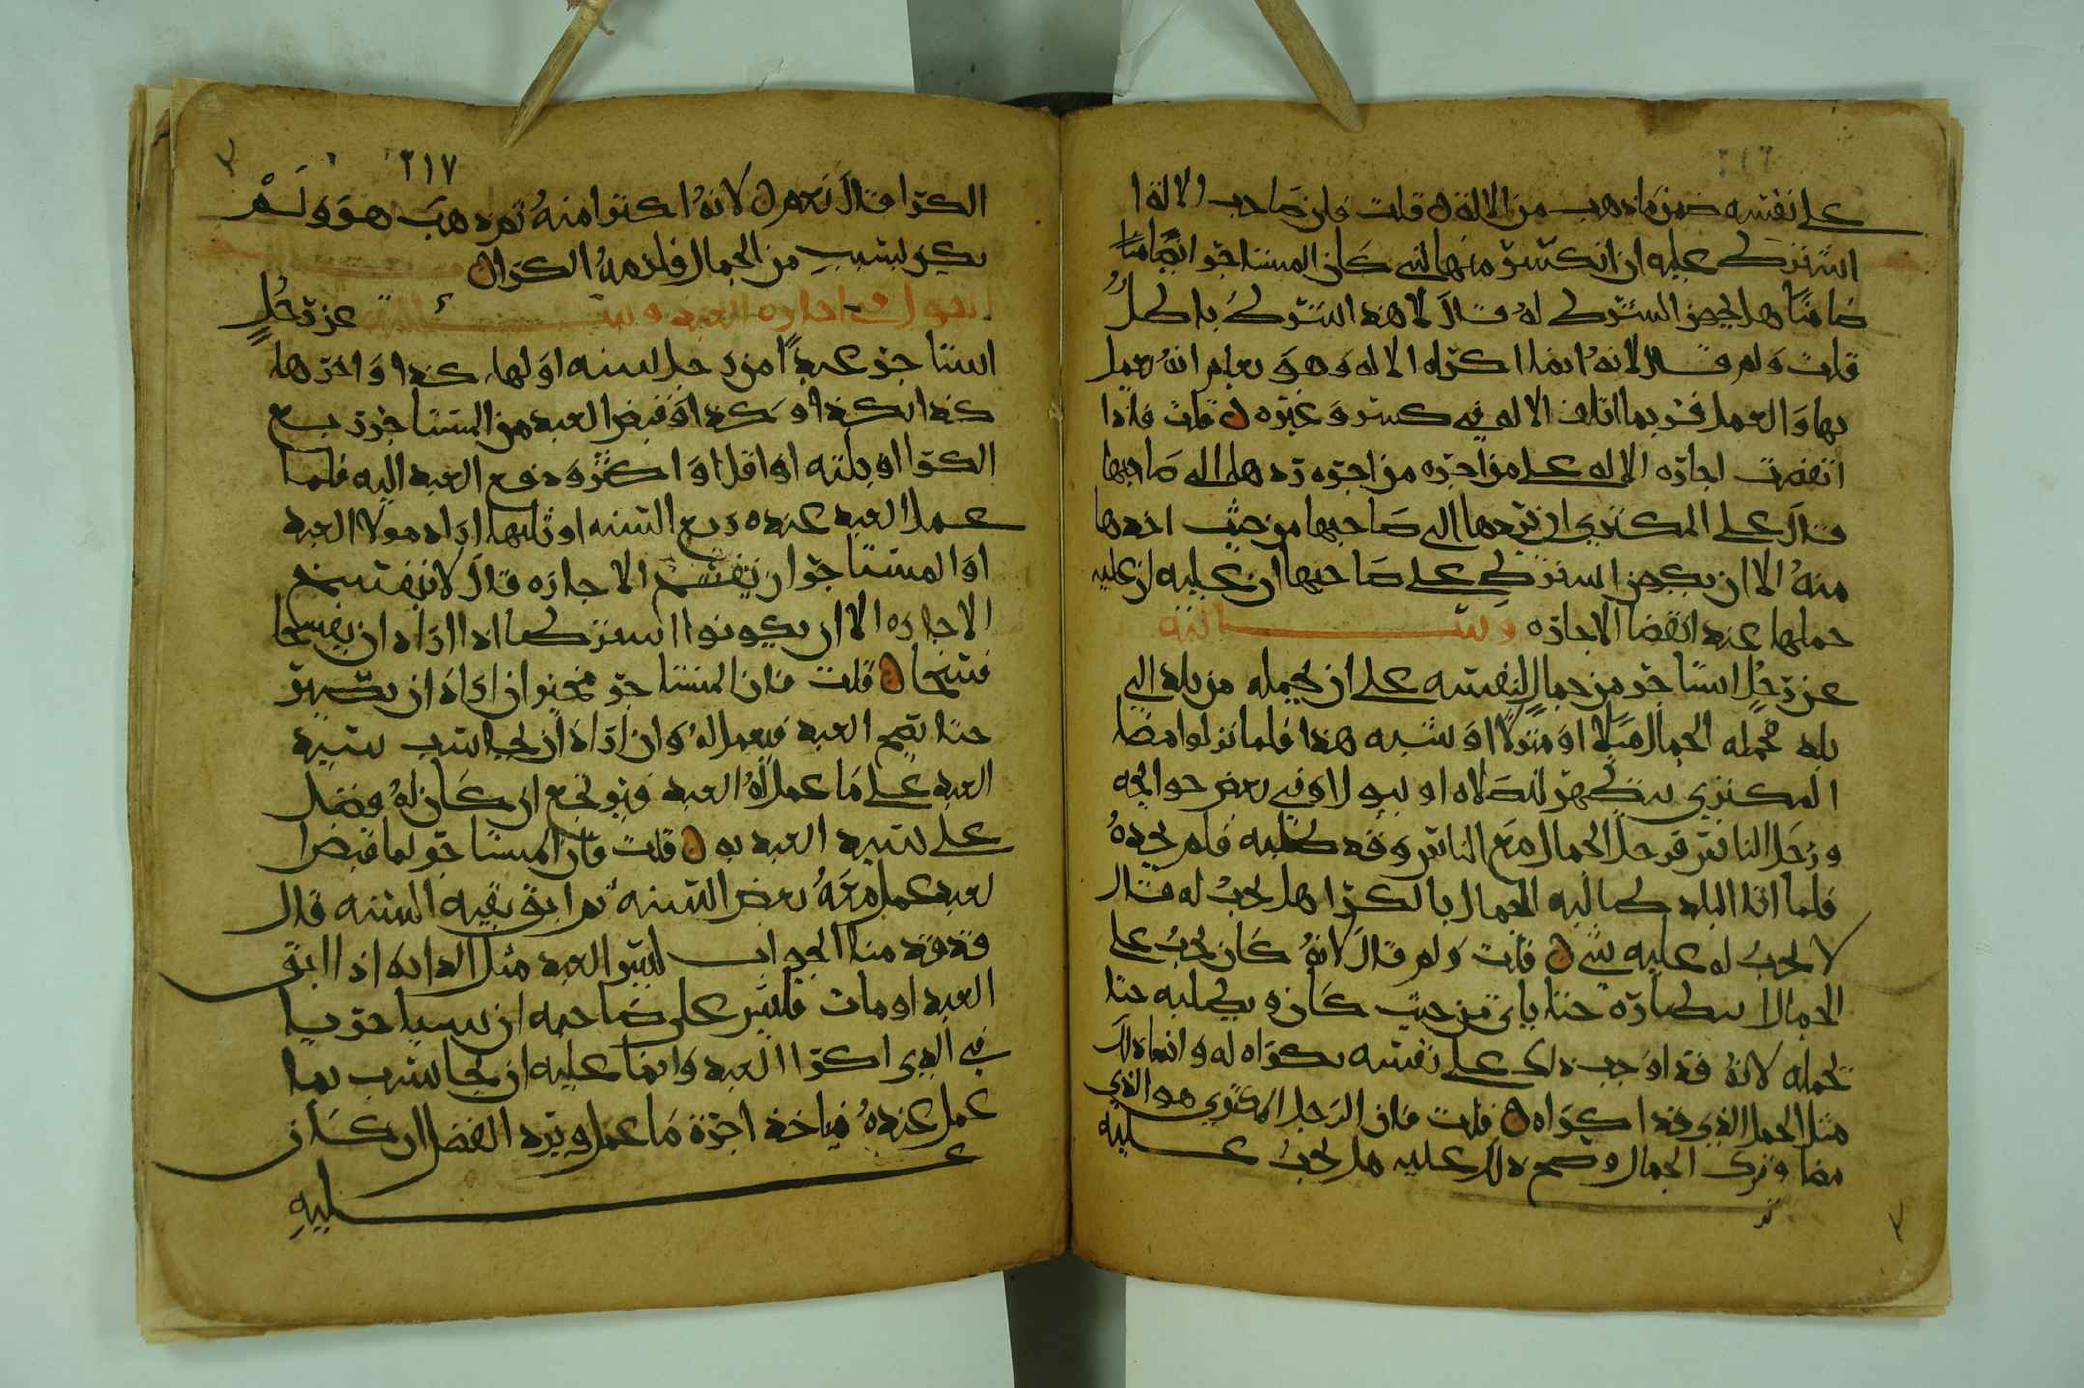 ٢١٦
على نفسه ضمن ما ذهب من الالة قلت فان صاحب الالة
اشترط عليه ان انكسر منها شي كان المستاجر ايضا
ضامنا هل يجوز الشرط له قال لا هذا الشرط باطل
قلت ولم قال لانه انما اكراه الاله وهو يعلم انه يعمل
بها والعمل فربما اتلف الاله في كسر وغيره قلت فاذا
انقضت اجارة الاله على من اجره من اجره رد هذا الى صاحبها
قال على المكتري ان يردها الى صاحبها من حيث اخذها
منه الا ان يكون اشترط على صاحبها ان عليه
حملها عند انقضا الاجاره وسالته
عن رجل استاجر من جمال لنفسه على ان يحمله من بلد الى
بلد فحمله الجمال ميلا او منزلا او شبه هذا فلما نزلوا مضا
المكتري يتطهر للصلاه او يبول او في بعض حوائجه
ورحل الناس فرحل الجمال مع الناس وقد طلبه فلم يجده
فلما اتا البلد طالبه الجمال بالكرا هل يجب له قال
لا يجب له عليه شي قلت ولم قال لانه كان يجب على
الجمال انتظاره حتا ياتي من حيث كان ويطلبه حتا
يحمله لانه قد اوجب ذلك على نفسه بكراه له وانما ذلك
مثل الحمل الذي قد اكراه قلت فان الرجل المكتري هو الذي
مضا وترك الجمال وصح ذلك عليه هل يجب عليه
٢١٧
الكرا قال نعم لانه اكترا منه ثم ذهب هو ولم
يكن لسبب من الجمال فلزمه الكرا
القول في اجارة العبد وسالته عن رجل
استاجر عبدا من رجل سنه اولها كذا واخرها
كذا بكذا وكذا وقبض العبد من المستاجر ربع
الكرا او ثلثه او اقل او اكثر ودفع العبد اليه فلما
عمل العبد عنده ربع السنه او ثلثها اراد مولا العبد
او المستاجر ان يفسخ الاجاره قال لا تنفسخ
الاجاره الا ان يكونوا اشترطا اذا ارادا ان يفسخا
فسخا قلت فان المستاجر مخير ان اراد ان يصبر
حتا يصح العبد فيعمل له وان اراد ان يحاسب سيد
العبد على ما عمل له العبد فيرتجع ان كان له فضل
على سيد العبد به قلت فان المستاجر لما قبض
العبد عمل معه بعض السنه ثم ابق بقيه السنه قال
قد قدمنا الجواب ليس العبد مثل الدابه اذا ابق
العبد او مات فليس على صاحبه ان يستاجر
في الذي اكترا العبد وانما عليه ان يحاسب بما
عمل عنده فياخذ اجرة ما عمل ويرد الفضل ان كان
عليه